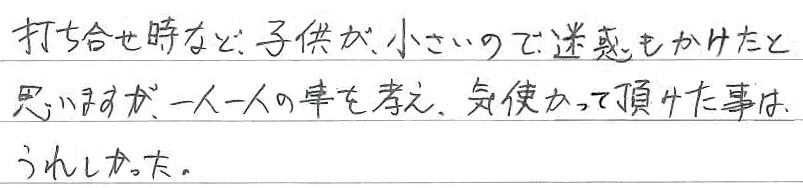 打ち合せ時など、子供が、小さいので迷惑もかけたと
思いますが、一人一人の事を考え、気使かって頂けた事は、
うれしかった。